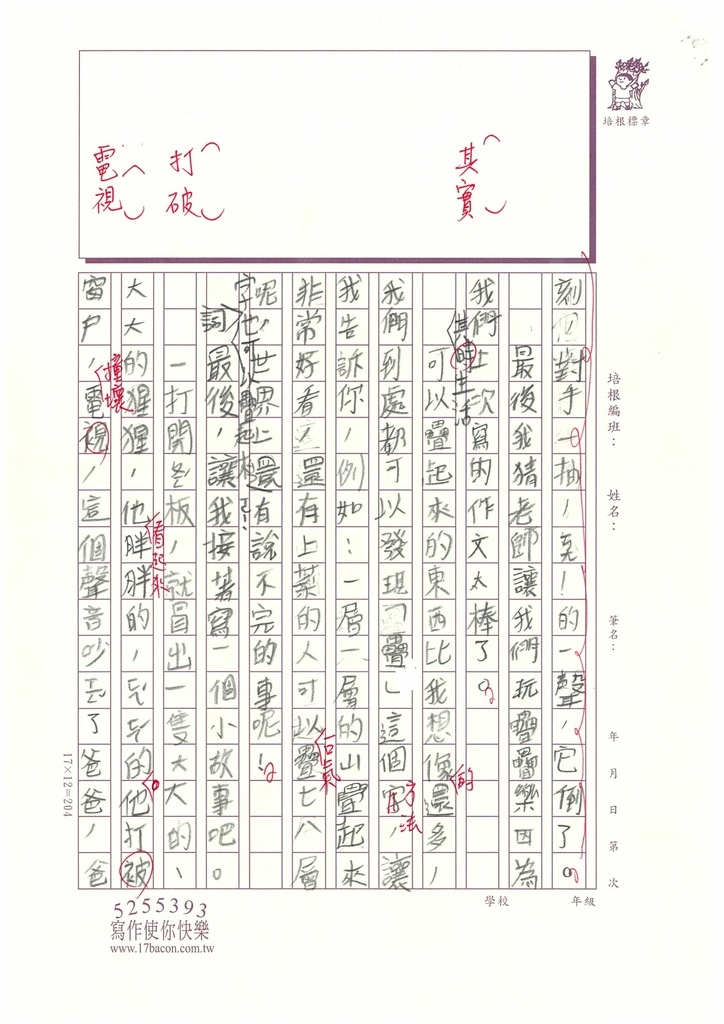 培根標章
其實
打破
電視
培根編班：
姓名：
筆名：
年 月 日 第 次
刻 對手一抽，克！的一聲，它倒了。
最後我猜老師讓我們玩疊疊樂因為
我們上次寫的作文太棒了。
其時生活
可以疊起來的東西比我想像還多，
的
我們到處都可以發現「疊」這個字，讓
方法
我告訴你，例如：一層一層的山疊起來
非常好看，還有上菜的人可以疊七八層
一口氣
呢，世界上還有說不完的事呢！
字也可以疊起來
詞
最後，讓我接著寫一個小故事吧。
一打開 板，就冒出一隻大大的、
大大的猩猩，他胖胖的， 的他打被
看起來
窗戶，電視，這個聲音吵 了爸爸，爸
撞壞
17×12=204
5255393
寫作使你快樂
www.17bacon.com.tw
學校
年級